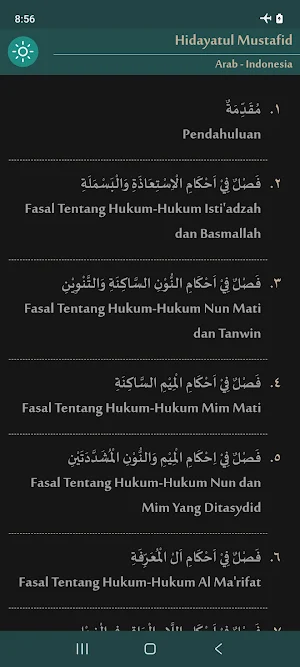 8:56
Hidayatul Mustafid
Arab - Indonesia
١. مُقَدِّمَةٌ
Pendahuluan
٢. فَصْلٌ فِيْ اَحْكَامِ الْاِسْتِعَاذَةِ وَالْبَسْمَلَةِ
Fasal Tentang Hukum-Hukum Isti'adzah
dan Basmallah
٣. فَصْلٌ فِيْ اَحْكَامِ النُّوْنِ السَّاكِنَةِ وَالتَّنْوِيْنِ
Fasal Tentang Hukum-Hukum Nun Mati
dan Tanwin
٤. فَصْلٌ فِيْ اَحْكَامِ الْمِيْمِ السَّاكِنَةِ
Fasal Tentang Hukum-Hukum Mim Mati
٥. فَصْلٌ فِيْ اِحْكَامِ الْمِيْمِ وَالنُّوْنِ الْمُشَدَّدَتَيْنِ
Fasal Tentang Hukum-Hukum Nun dan
Mim Yang Ditasydid
٦. فَصْلٌ فِيْ اَحْكَامِ اَلْ الْمُعَرِّفَةِ
Fasal Tentang Hukum-Hukum Al Ma'rifat